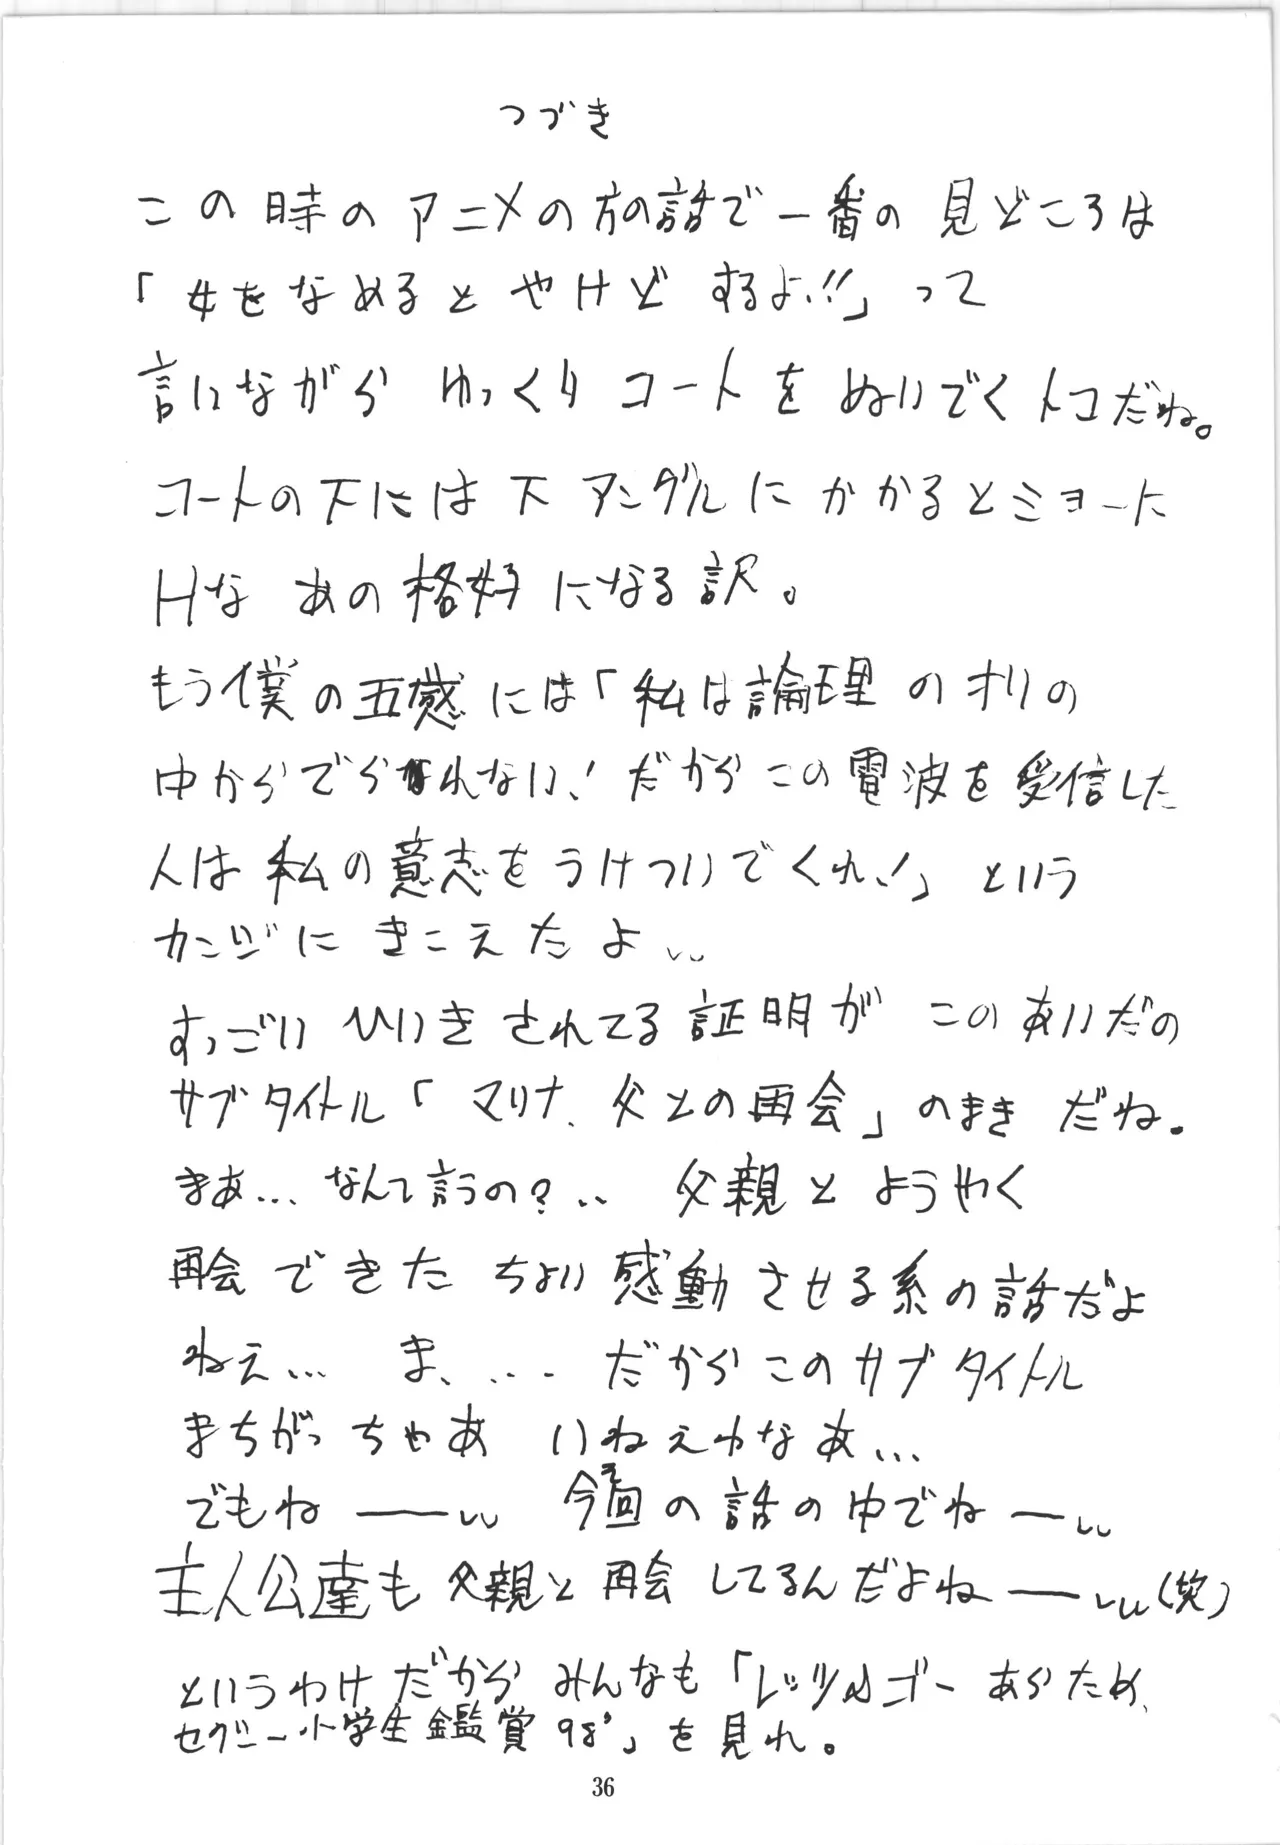 つづき
この時のアニメの方の話で一番の見どころは
「女をなめるとやけどするよ!!」って
言いながら ゆっくりコートをぬいでくトコだね。
コートの下には下アングルにかかるとミョーに
Hな あの格好になる訳。
もう僕の五感には「私は論理のオリの
中からでられない! だからこの電波を受信した
人は私の意志をうけついでくれ!」という
カンジにきこえたよ
すっごいひいきされてる証明が このあいだの
サブタイトル「マリナ、父との再会」のまきだね。
まあ… なんて言うの?‥ 父親とようやく
再会できた ちょい感動させる系の話だよ
ねえ… ま、… だからこのサブタイトル
まちがっちゃあ いねえわなあ…
でもねーー 今回の話の中でねー
主人公達も父親と再会してるんだよねー(笑)
というわけだから みんなも「レッツ&ゴー あらため、
セクシー小学生鑑賞 98'」を見れ。
36